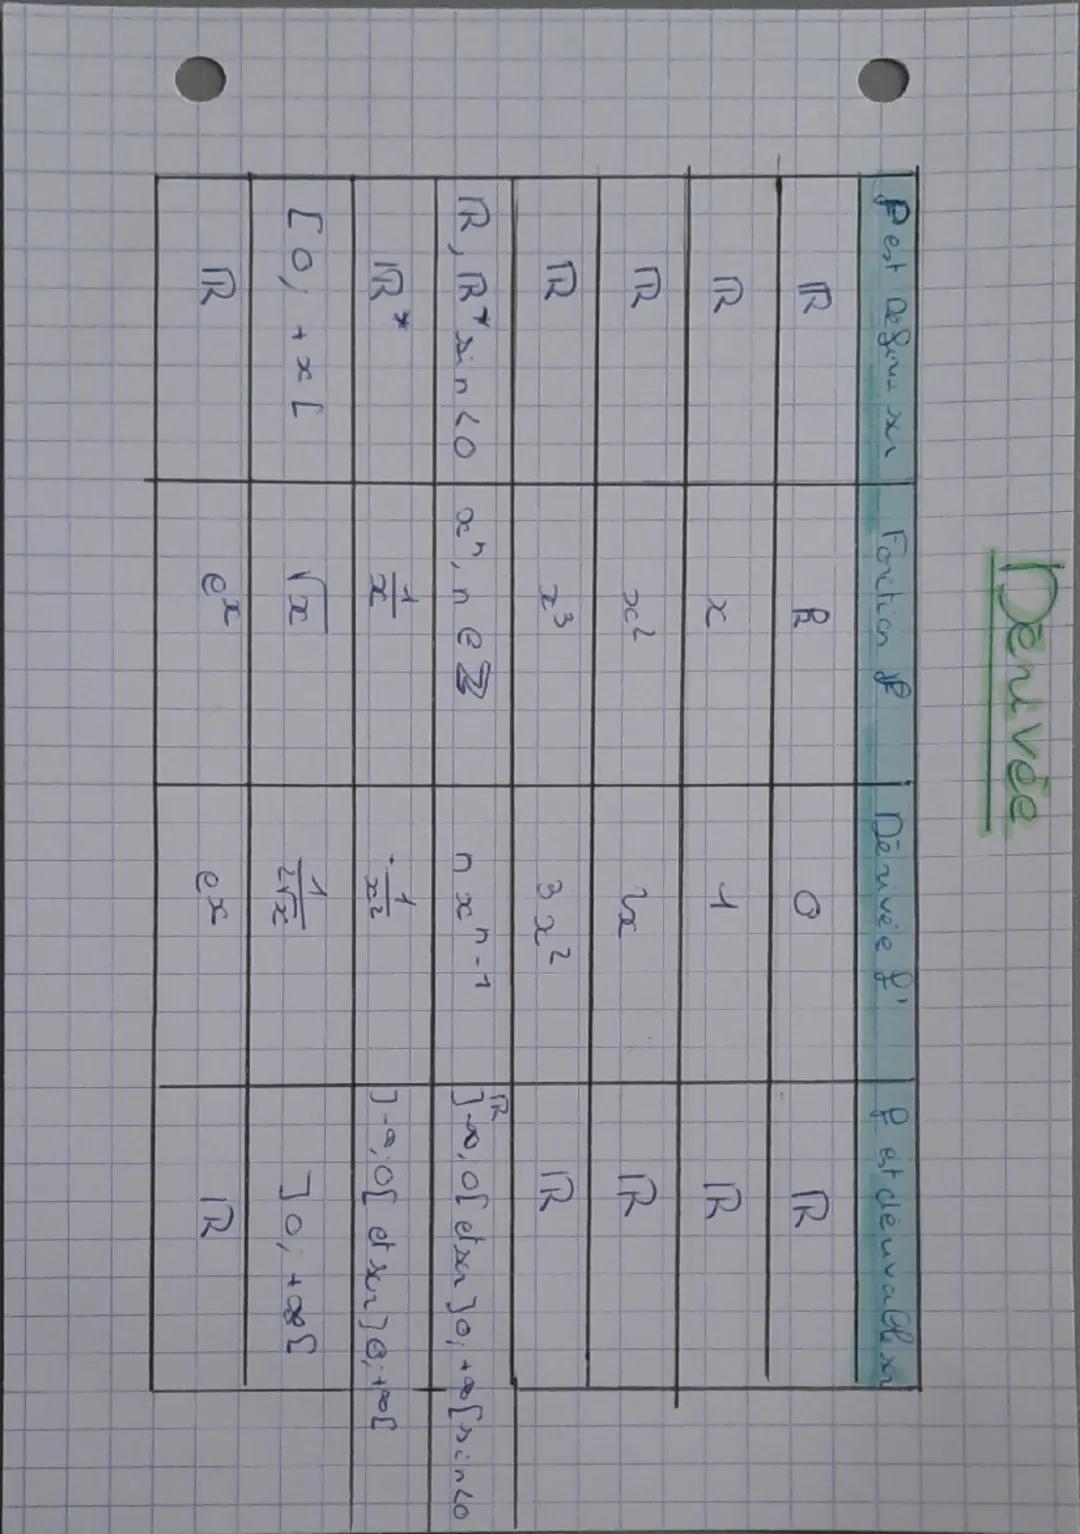 Dérivée
f est définie sur Fonction f Dérivée f' f est dérivable sur
ℝ k 0 ℝ
ℝ x 1 ℝ
ℝ x² 2x ℝ
ℝ x³ 3x² ℝ
ℝ, ℝ* si n<0 xⁿ, n ∈ ℤ n xⁿ⁻¹ ℝ ]-∞, 0[ et sur ]0; +∞[ si n<0
ℝ* 1/x -1/x² ]-∞; 0[ et sur ]0; +∞[
[0; +x[ √x 1/2√x ]0; +∞[
ℝ eˣ eˣ ℝ